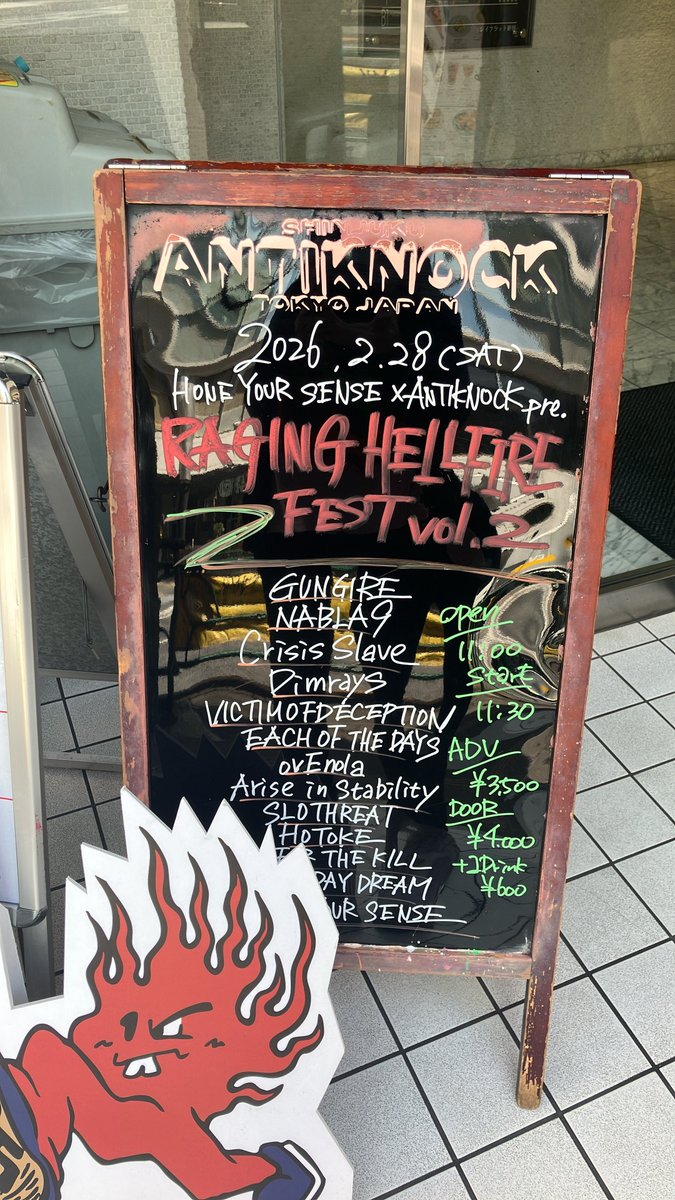 SHINJUKU
ANTIKNOCK
TOKYO JAPAN
2026.2.28(SAT)
HONE YOUR SENSE x ANTIKNOCK pre.
RAGING HELLFIRE
FEST vol.2
GUNGIRE
NABLA9
Crisis Slave
Dimrays
VICTIM OF DECEPTION
EACH OF THE DAYS
ovEnola
Arise in Stability
SLOTHREAT
HOTOKE
THE KILL
DAY DREAM
UR SENSE
open
11:00
Start
11:30
ADV
¥3,500
DOOR
¥4.000
+1Drink
¥600